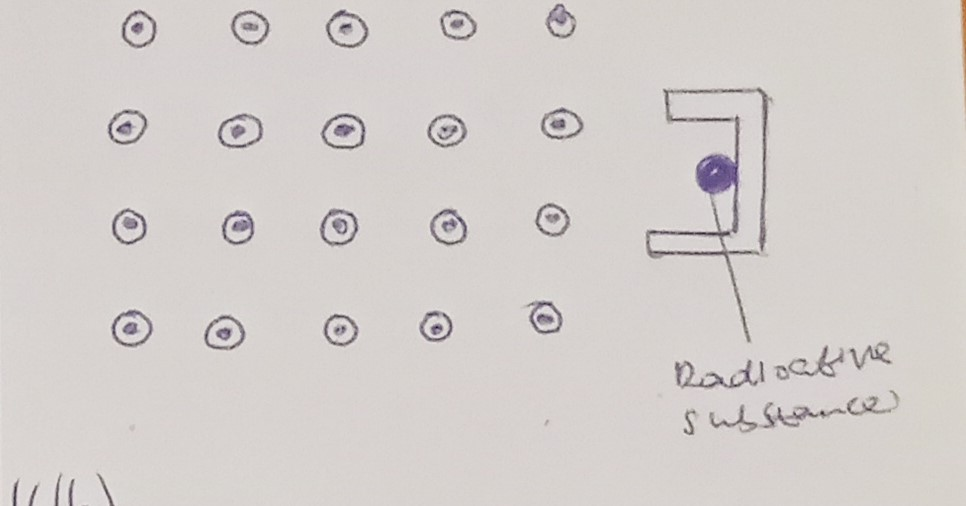 Radioative
substance